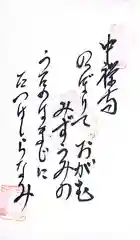 中禅寺
のぼりて おがむ
みずうみの
うたのはまじに
たつけしらなみ